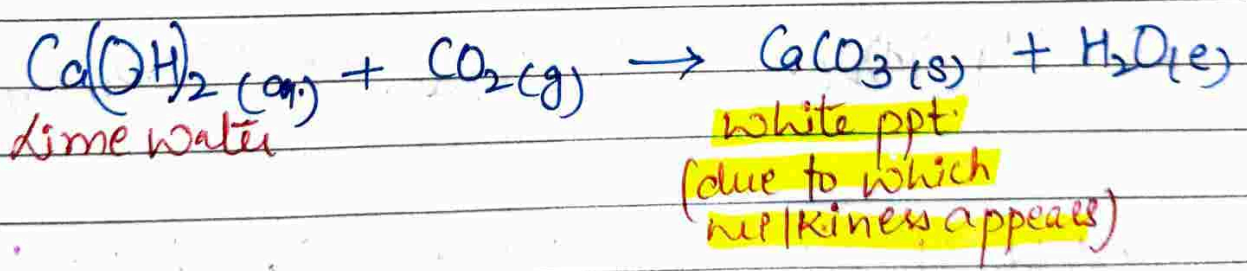 Ca(OH)2 (aq.) + CO2 (g) → CaCO3 (s) + H2O(l)
Lime water
white ppt.
(due to which
milkiness appears)